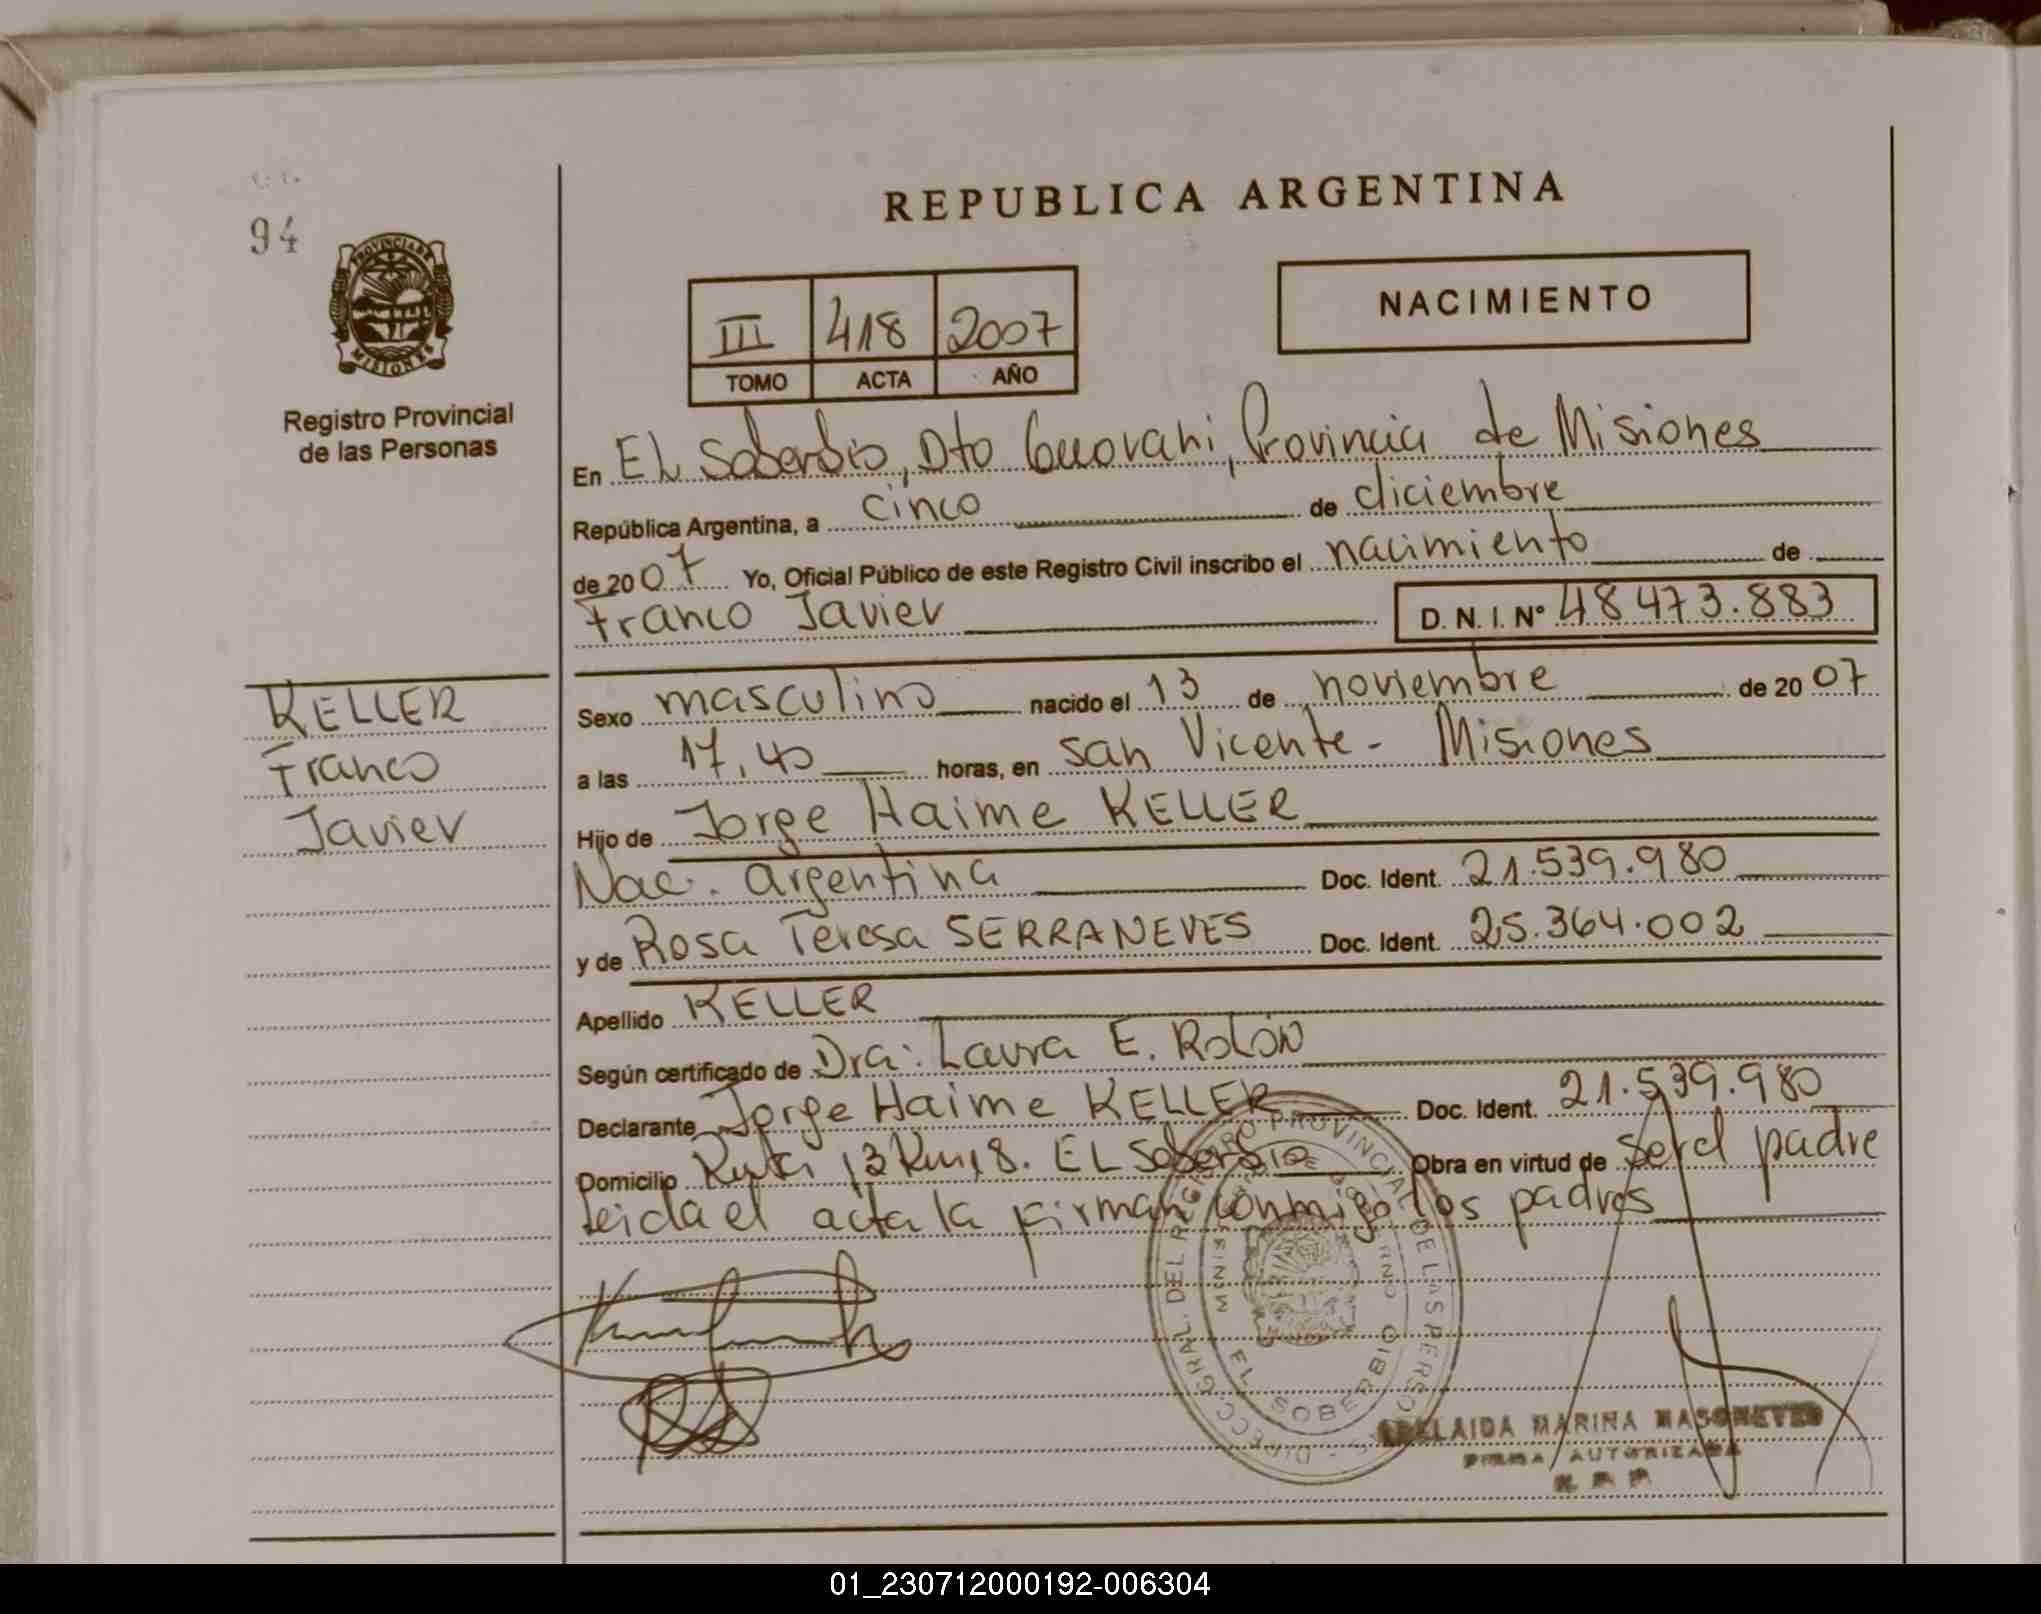 94
PROVINCIA DE
MISIONES
Registro Provincial
de las Personas
REPUBLICA ARGENTINA
III 418 2007
TOMO ACTA AÑO
NACIMIENTO
En EL Soberbio, Dto Guarani, Provincia de Misiones
República Argentina, a cinco de diciembre
de 2007 Yo, Oficial Público de este Registro Civil inscribo el nacimiento de
Franco Javier D. N. I. Nº 48 473.883
KELLER
Franco
Javier
Sexo masculino nacido el 13 de noviembre de 2007
a las 17,40 horas, en San Vicente - Misiones
Hijo de Jorge Haime KELLER
Nac. argentina Doc. Ident. 21.539.980
y de Rosa Teresa SERRANEVES Doc. Ident. 25.364.002
Apellido KELLER
Según certificado de Dra: Laura E. Rolón
Declarante Jorge Haime KELLER Doc. Ident. 21.539.980
Domicilio Ruta 13 Km 8. EL Soberbio Obra en virtud de ser el padre
leida el acta la firman conmigo los padres
DIRECC. GRAL. DEL REGISTRO PROVINCIAL DE LAS PERSONAS
MINISTERIO DE GOBIERNO
EL SOBERBIO
ADELAIDA MARINA MASONEVES
FIRMA AUTORIZADA
R P P
01_230712000192-006304